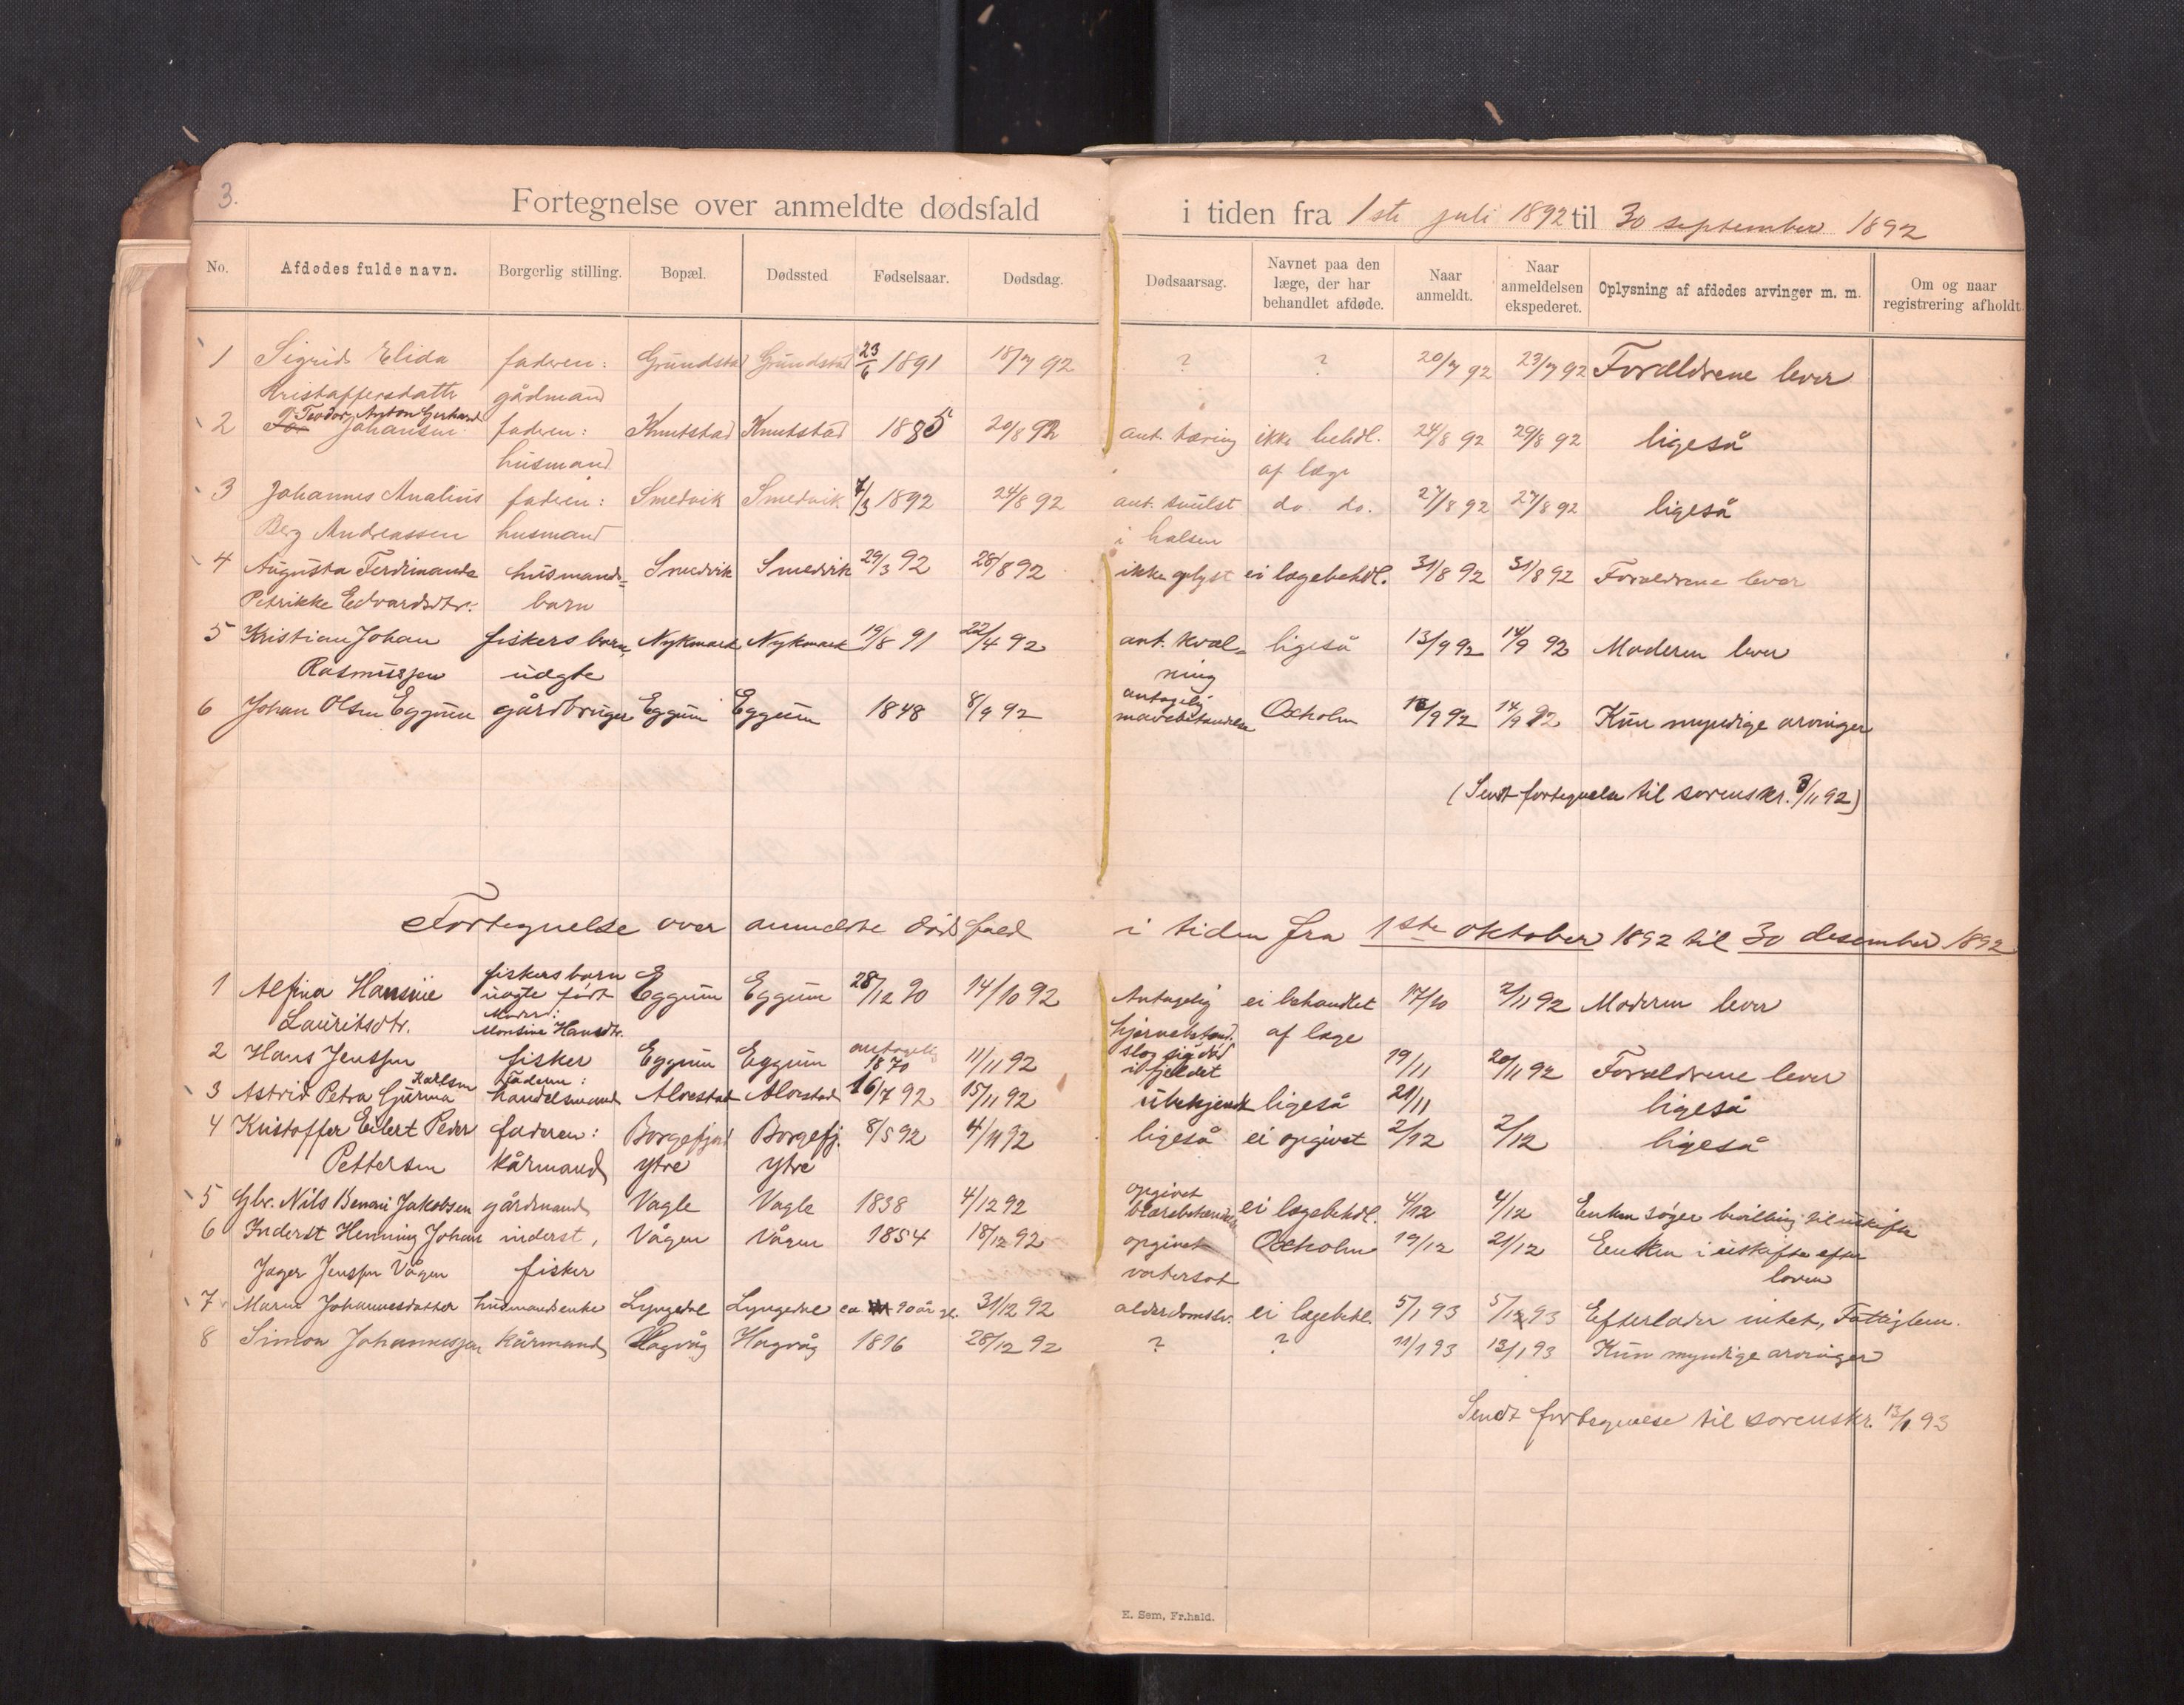 3.
Fortegnelse over anmeldte dødsfald i tiden fra 1ste juli 1892 til 30 september 1892
No. Afdødes fulde navn. Borgerlig stilling. Bopæl. Dødssted Fødselsaar. Dødsdag. Dødsaarsag. Navnet paa den læge, der har behandlet afdøde. Naar anmeldt. Naar anmeldelsen ekspederet. Oplysning af afdødes arvinger m. m. Om og naar registrering afholdt.
1 Sigrid Elida faderen: Grundstad Grundstad 23/6 1891 18/7 92 ? ? 20/7 92 23/7 92 Forældrene lever
Kristoffersdatter gådmand
Teodor Anton Gerhard
2 Johansen. faderen: Knutstad Knutstad 1885 20/8 92 ant. tæring ikke behdl. 24/8 92 29/8 92 ligeså
husmand af læge
3 Johannes Analius faderen: Smedvik Smedvik 7/3 1892 24/8 92 ant. svulst do. do. 27/8 92 27/8 92 ligeså
Berg Andreassen husmand i halsen
4 Augusta Ferdinande husmands= Smedvik Smedvik 29/3 92 28/8 92 ikke oplyst ei lægebehdl. 31/8 92 31/8 92 Forældrene lever
Petrikke Edvardsdtr. barn
5 Kristian Johan fiskers barn, Nykmark Nykmark 19/8 91 22/4 92 ant. kvæl= ligeså 13/9 92 14/9 92 Moderen lever
Rasmussen uægte ning
antagelig
6 Johan Olsen Eggum gårdbruger Eggum Eggum 1848 8/9 92 mavebetændelse Oxholm 13/9 92 14/9 92 Kun myndige arvinger
(Sendt fortegnelse til sorenskr. 3/11 92)
Fortegnelse over anmeldte dødsfald i tiden fra 1ste oktober 1892 til 30 desember 1892
fiskers barn
1 Alfina Hansine uægte født Eggum Eggum 28/12 90 14/10 92 Antagelig ei behandlet 17/10 2/11 92 Moderen lever
Moder:
Lauritsdtr. Monsine Hansdtr. hjernebetænd. af læge
antagelig slog sig død
2 Hans Jenssen fisker Eggum Eggum 1870 11/11 92 i fjeldet 19/11 20/11 92 Forældrene lever
Karlsen faderen:
3 Astrid Petra Gurina handelsmand Alvestad Alvestad 16/7 92 15/11 92 ubekjendt ligeså 21/11 ligeså
4 Kristoffer Eilert Peder faderen: Borgefjord Borgefj. 8/5 92 4/11 92 ligeså ei opgivet 2/12 2/12 ligeså
Pettersen kårmand ytre ytre
opgivet
5 Gbr. Nils Benoni Jakobsen gårdmand Vagle Vagle 1838 4/12 92 blærebetændelse ei lægebehdl. 4/12 4/12 Enken søger bevilling til uskifte
6 Inderst Henning Johan inderst, Vågen Vågen 1854 18/12 92 opgivet Oxholm 19/12 21/12 Enken i uskifte efter
Jager Jenssen Vågen fisker vatersot loven
7 Maren Johannesdatter husmandsenke Lyngedal Lyngedal ca 90 år gl. 31/12 92 alderdomssv. ei lægebehdl. 5/1 93 5/1 93 Efterlader intet, Fattiglem.
8 Simon Johannessen kårmand Hagvåg Hagvåg 1816 28/12 92 ? ? 11/1 93 13/1 93 Kun myndige arvinger
Sendt fortegnelse til sorenskr. 13/1 93
E. Sem, Fr.hald.